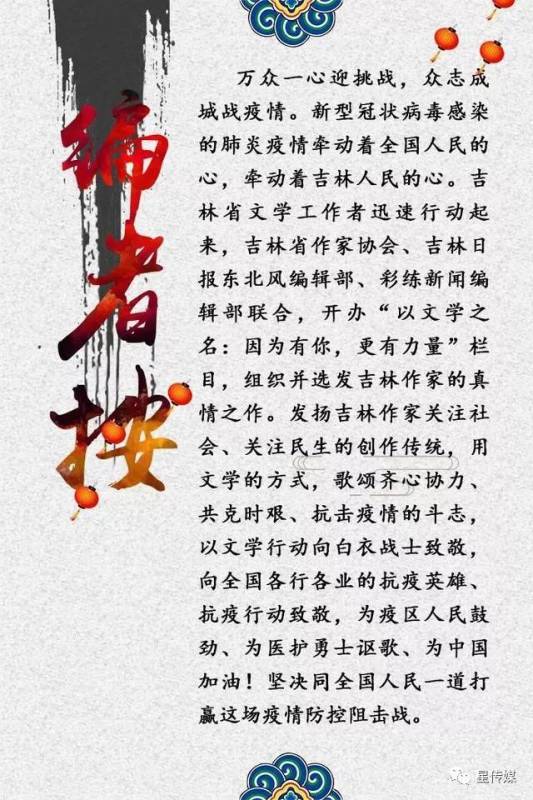 编者按
万众一心迎挑战，众志成
城战疫情。新型冠状病毒感染
的肺炎疫情牵动着全国人民的
心，牵动着吉林人民的心。吉
林省文学工作者迅速行动起
来，吉林省作家协会、吉林日
报东北风编辑部、彩练新闻编
辑部联合，开办“以文学之
名：因为有你，更有力量”栏
目，组织并选发吉林作家的真
情之作。发扬吉林作家关注社
会、关注民生的创作传统，用
文学的方式，歌颂齐心协力、
共克时艰、抗击疫情的斗志，
以文学行动向白衣战士致敬，
向全国各行各业的抗疫英雄、
抗疫行动致敬，为疫区人民鼓
劲、为医护勇士讴歌、为中国
加油！坚决同全国人民一道打
赢这场疫情防控阻击战。
星传媒